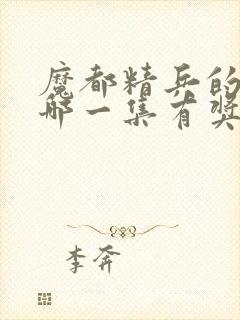 魔都精兵的
哪一集有奖
李奔